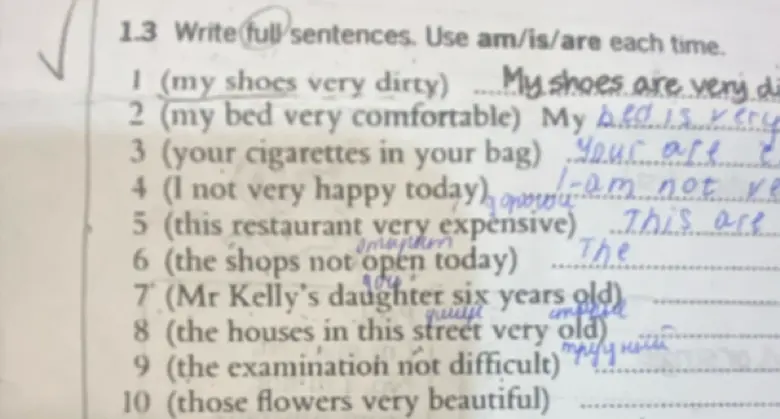 1.3 Write full sentences. Use am/is/are each time.
1 (my shoes very dirty) My shoes are very di
2 (my bed very comfortable) My bed is very
3 (your cigarettes in your bag) Your are c
4 (I not very happy today) I am not ve
дорогой
5 (this restaurant very expensive) This are
6 (the shops not open today) The
7 (Mr Kelly's daughter six years old)
улице
8 (the houses in this street very old)
9 (the examination not difficult)
10 (those flowers very beautiful)